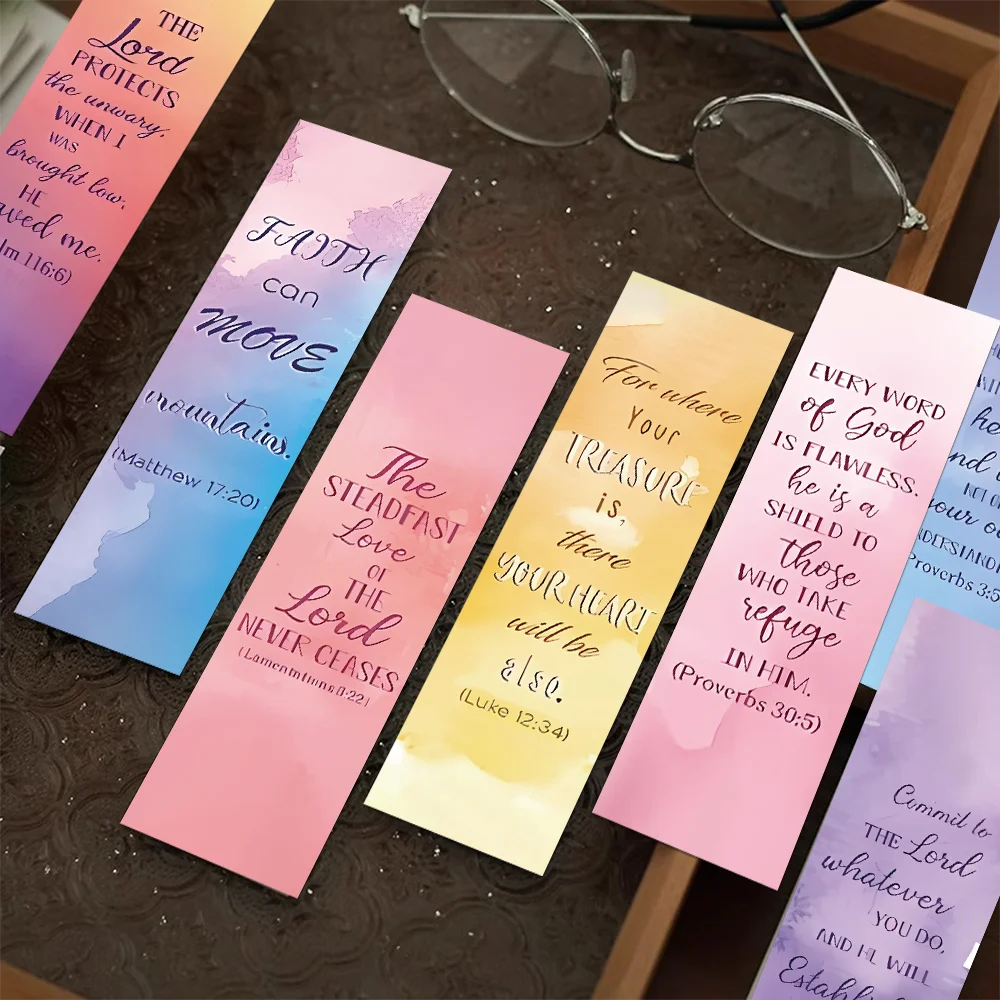 THE
Lord
PROTECTS
the unwary;
WHEN I
WAS
brought low,
HE
aved me.
lm 116:6)
FAITH
can
MOVE
mountains.
(Matthew 17:20)
The
STEADFAST
Love
OF
THE
Lord
NEVER CEASES
For where
Your
TREASURE
is,
there
YOUR HEART
will be
also.
(Luke 12:34)
EVERY WORD
of God
IS FLAWLESS.
he is a
SHIELD TO
those
WHO TAKE
refuge
IN HIM.
(Proverbs 30:5)
he
nd
NOT
your
NDERSTAND
Proverbs 3:5
Commit to
THE Lord
whatever
YOU DO,
AND HE WILL
Establ